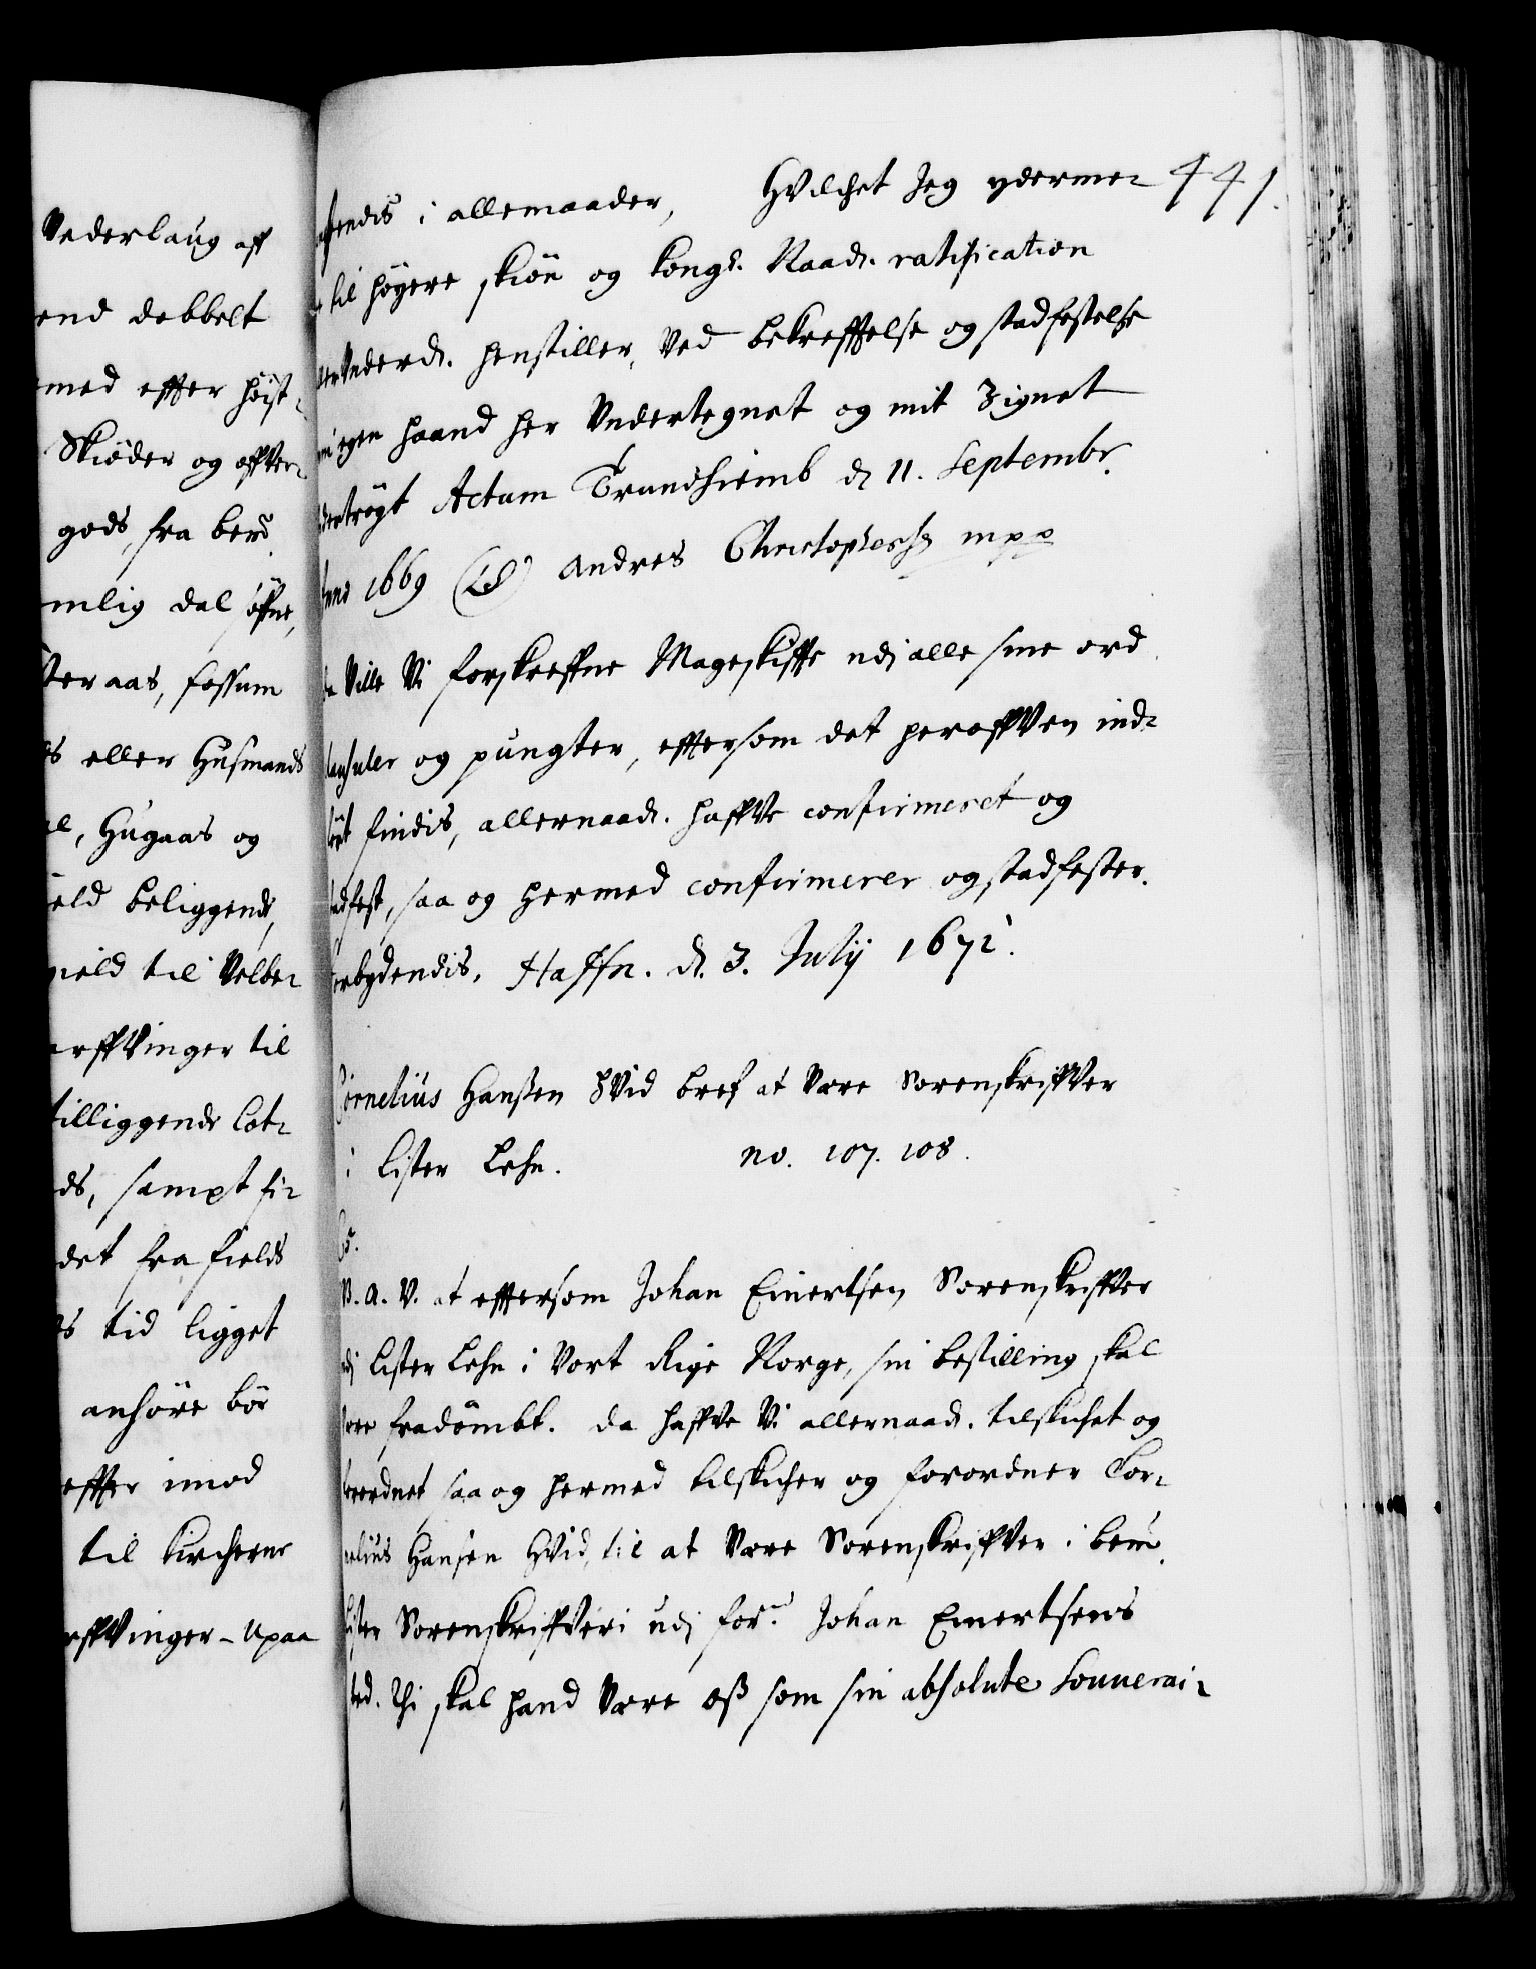 Vederlaug aff
end dobbelt
med effter høist-
Skiøder og affver-
gods, fra ber:
mlig dal øffne,
ter aas, fossum
s eller Husmands
el, Hugaas og
ield beliggende,
gield til Velbe-
arffvinger til
tilliggende lot-
ds, sampt fi-
det fra fields
s tid ligget
anhøre bør
effter imod
til kircherne
rffvinger - Upaa
441.
endis i allemaader, Hvilchet Jeg ydermee-
til høyere skiøn og kongl. Naads. ratification
allerunderd. henstiller, Ved bekrefftelse og stadfestelse
min egen haand her Undertegnet og mit Zignet
undertrøgt Actum Trundhiemb d 11. Septembr.
Anno 1669 (LS) Andres Christophersen mpp
Da Ville Vi forskreffne Mageskiffte udj alle sine ord
clausuler og pungter, effersom det heroffven ind-
ført findis, allernaad. haffve confirmeret og
stadfest, saa og hermed confirmerer og stadfester.
Forbydendis. Haffn. d. 3. Julij 1672.
Cornelius Hanßen Hvid bref at Være Sorenskriffver
i Lister Lehn. no. 107. 108.
C5.
G. A. V. at effersom Johan Einertsen Sorenskriffver
udj Lister Lehn i Vort Rige Norge, sin bestilling skal
være fradømbt. Da haffve Vi allernaad. tilskichet og
forordnet saa og hermed tilskicher og forordner Cor-
nelius Hansen Hvid, til at Være Sorenskriffver i bem.te
Lister Sorenskriffveri udj for.ne Johan Einertsens
sted. Thi skal hand Være Oß som sin absolute Souverai-